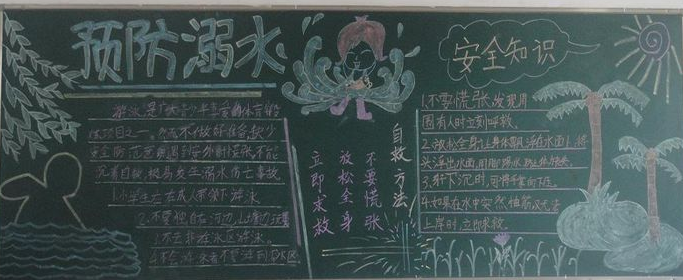 预防溺水
游泳是广大青少年喜爱的体育锻
炼项目之一。然而不做好准备,缺少
安全防范意识,遇到意外时慌张,不能
沉着自救,极易发生溺水伤亡事故。
1.小学生应在成人带领下游泳
2.不要独自在河边、山塘边玩耍
3.不去非游泳区游泳。
4.不会游泳者不要游到深水区
自救方法
不要慌张
放松全身
立即求救
安全知识
1.不要慌张,发现周
围有人时立刻呼救。
2.放松全身,让身体漂浮在水面上,将
头浮出水面,用脚踢水
3.身体下沉时,可将手掌向下压。
4.如果在水中突然抽筋,又无法
上岸时,立即求救。